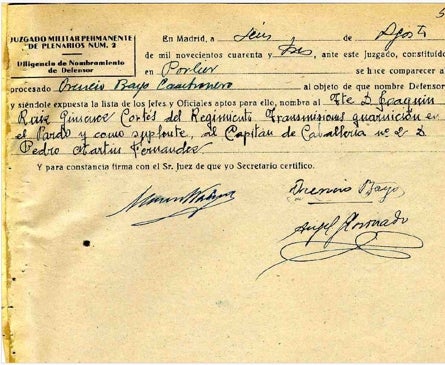 JUZGADO MILITAR PERMANENTE
DE PLENARIOS NUM. 2
Diligencia de Nombramiento
de Defensor
En Madrid, a Seis de Agosto
de mil novecientos cuarenta y tres, ante este Juzgado, constituído
en Porlier se hace comparecer a
procesado Orencio Bayo al objeto de que nombre Defensor
y siéndole expuesta la lista de los Jefes y Oficiales aptos para ello, nombra al Tte D. Joaquin
Ruiz Gimenez Cortés del Regimiento Transmisiones guarnición en
el Pardo y como suplente, al Capitan de Caballeria nº 2 D
Pedro Martin Fernandez
Y para constancia firma con el Sr. Juez de que yo Secretario certifico.
Orencio Bayo
Angel